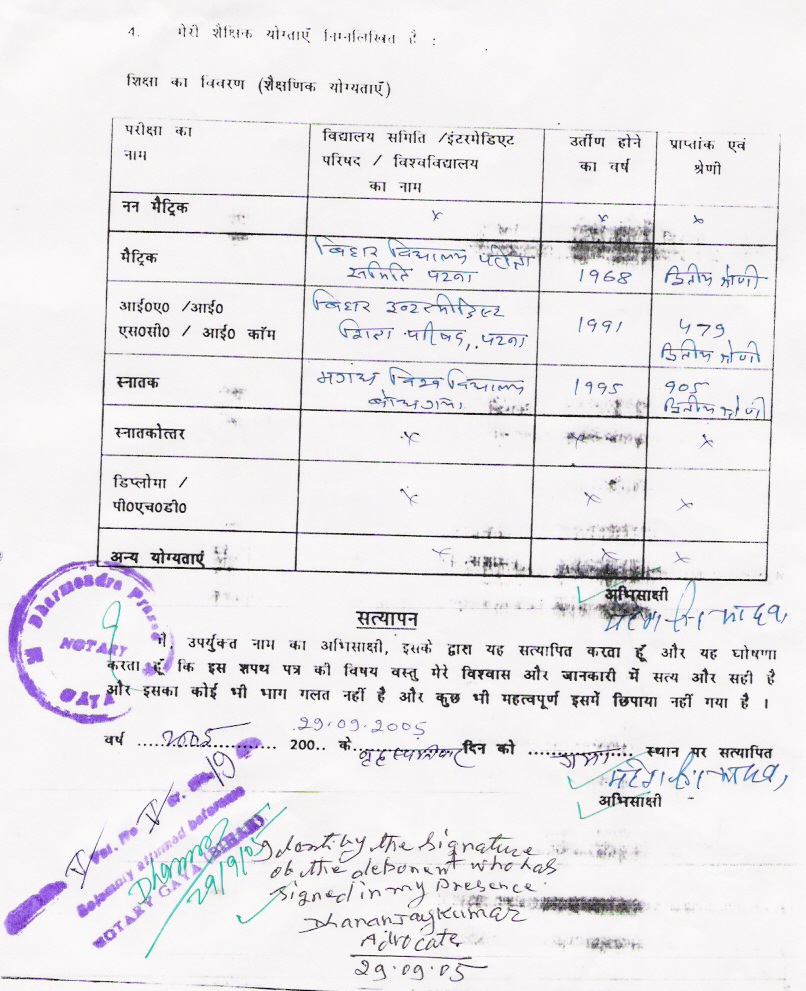 4. मेरी शैक्षिक योग्ताएँ निम्नलिखित है :
शिक्षा का विवरण (शैक्षणिक योग्यताएँ)
परीक्षा का
नाम
विद्यालय समिति /इंटरमेडिएट
परिषद / विश्वविद्यालय
का नाम
उर्तीण होने
का वर्ष
प्राप्तांक एवं
श्रेणी
नन मैट्रिक
x x x
मैट्रिक
बिहार विद्यालय परीक्षा
समिति पटना
1968
द्वितीय श्रेणी
आई०ए० /आई०
एस०सी० / आई० कॉम
बिहार इन्टरमीडिएट
शिक्षा परिषद, पटना
1991
479
द्वितीय श्रेणी
स्नातक
मगध विश्व विद्यालय
बोधगया
1995
905
द्वितीय श्रेणी
स्नातकोत्तर
x x x
डिप्लोमा /
पी०एच०डी०
x x x
अन्य योग्यताएं
x x x
अभिसाक्षी
सत्यापन
मै, उपर्युक्त नाम का अभिसाक्षी, इसके द्वारा यह सत्यापित करता हूँ और यह घोषणा
करता हूँ कि इस शपथ पत्र की विषय वस्तु मेरे विश्वास और जानकारी में सत्य और सही है
और इसका कोई भी भाग गलत नहीं है और कुछ भी महत्वपूर्ण इसमें छिपाया नहीं गया है ।
29.09.2005
वर्ष ...2005... 200.. के बृहस्पतिवार दिन को ...गया... स्थान पर सत्यापित
अभिसाक्षी
Dharmendra Prasad
NOTARY
GAYA
Vol. No V Sr. No. 19
Solemnly affirmed before me
NOTARY GAYA (BIHAR)
29/9/05
Identify the Signature
of the deponent who has
signed in my presence.
Dhananjay Kumar
Advocate
29.09.05